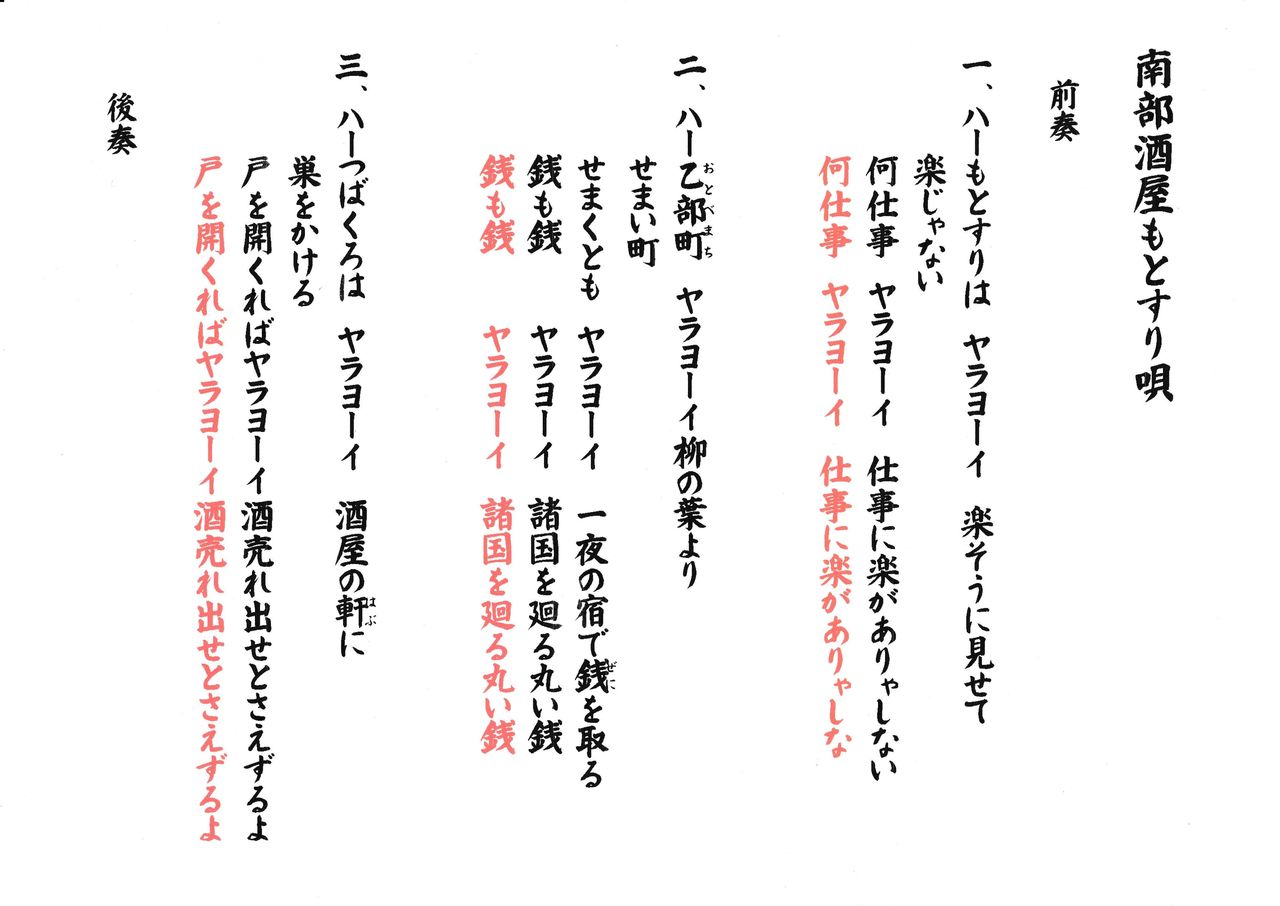 南部酒屋もとすり唄
前奏
一、ハーもとすりは ヤラヨーイ 楽そうに見せて
楽じゃない
何仕事 ヤラヨーイ 仕事に楽がありゃしない
何仕事 ヤラヨーイ 仕事に楽がありゃしな
二、ハー乙部町 ヤラヨーイ柳の葉より
おとべまち
せまい町
せまくとも ヤラヨーイ 一夜の宿で銭を取る
ぜに
銭も銭 ヤラヨーイ 諸国を廻る丸い銭
銭も銭 ヤラヨーイ 諸国を廻る丸い銭
三、ハーつばくろは ヤラヨーイ 酒屋の軒に
はぶ
巣をかける
戸を開くればヤラヨーイ酒売れ出せとさえずるよ
戸を開くればヤラヨーイ酒売れ出せとさえずるよ
後奏